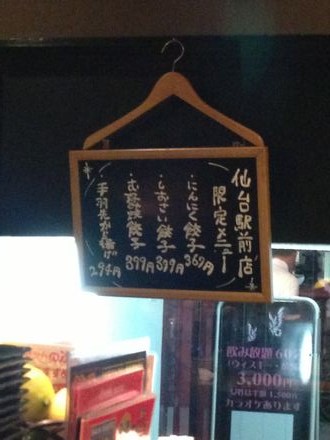 仙台駅前店
限定メニュー
・にんにく餃子 369円
・しおさい餃子 399円
・む蒸焼餃子 399円
・手羽先から揚げ 294円
飲み放題60分
3,000円
カラオケあります